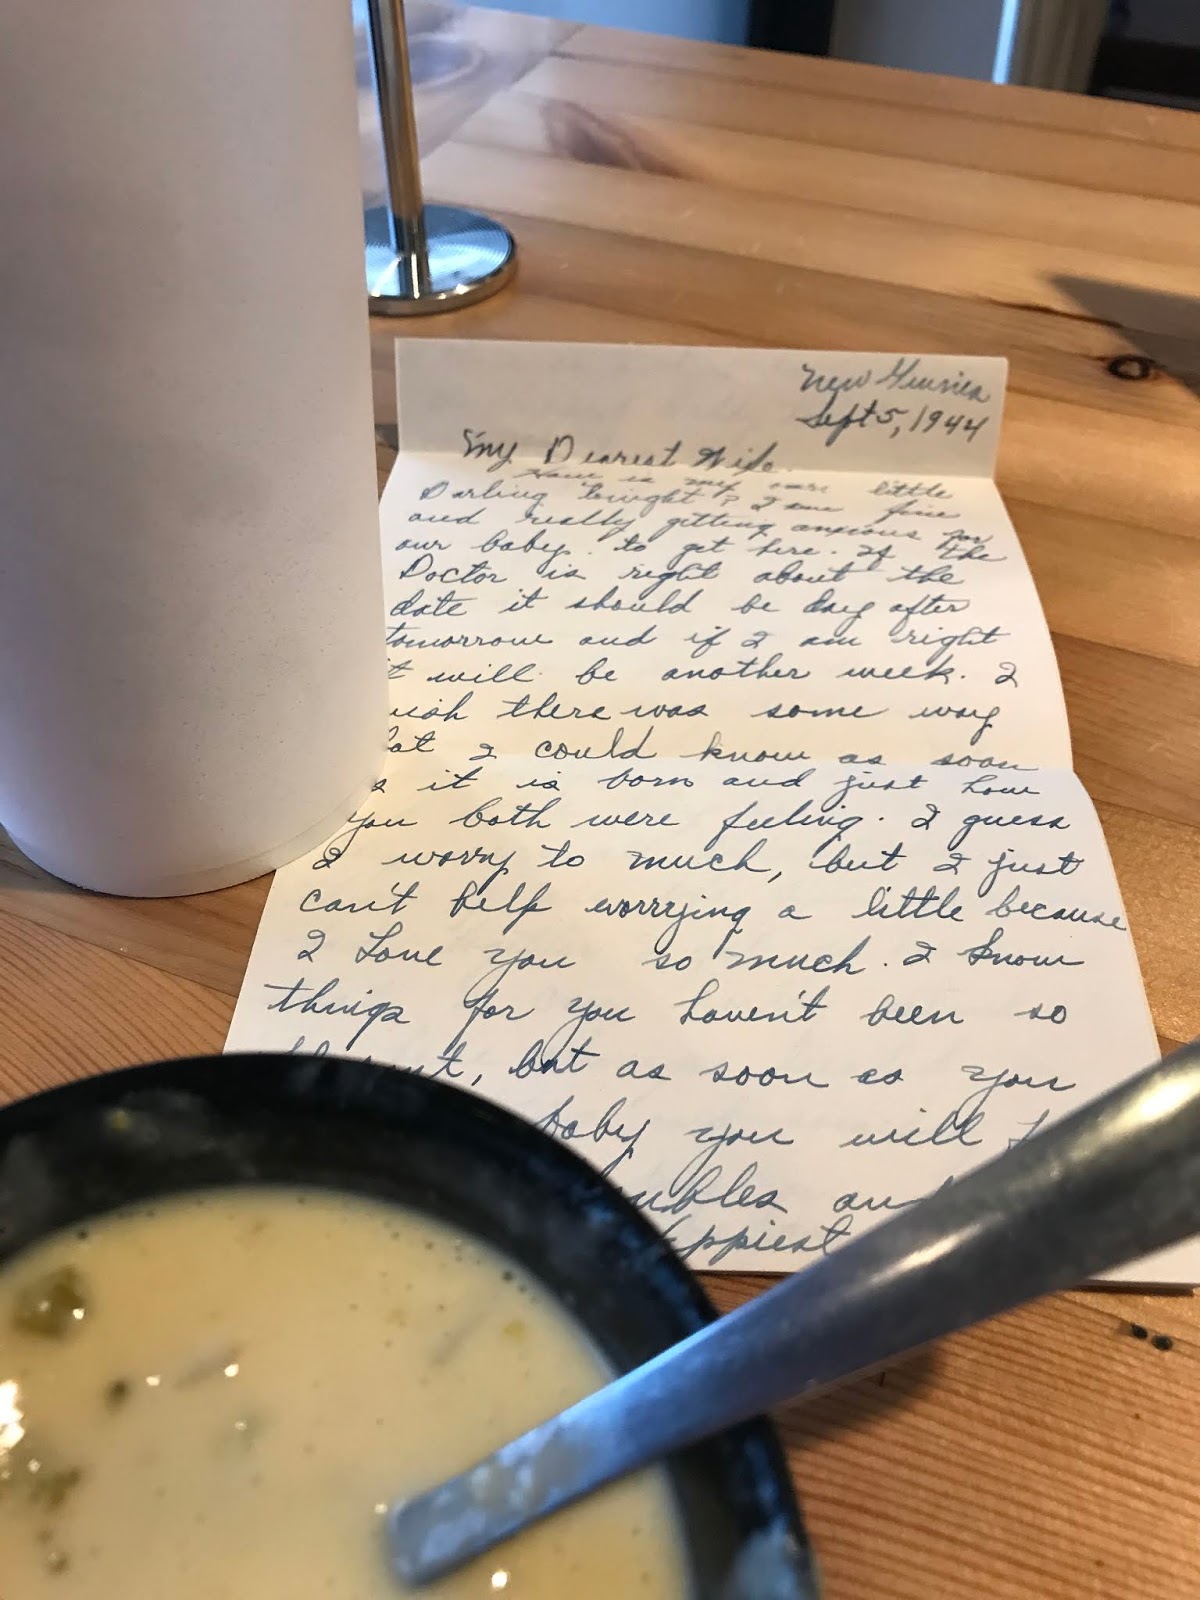 New Guinea
Sept 5, 1944
My Dearest Wife.
How is my little
Darling tonight? I am fine
and really getting anxious for
our baby to get here. If the
Doctor is right about the
date it should be day after
tomorrow and if I am right
it will be another week. I
wish there was some way
that I could know as soon
as it is born and just how
you both were feeling. I guess
I worry to much, but I just
can't help worrying a little because
I Love you so much. I know
things for you haven't been so
, but as soon as you
baby you will
and
happiest